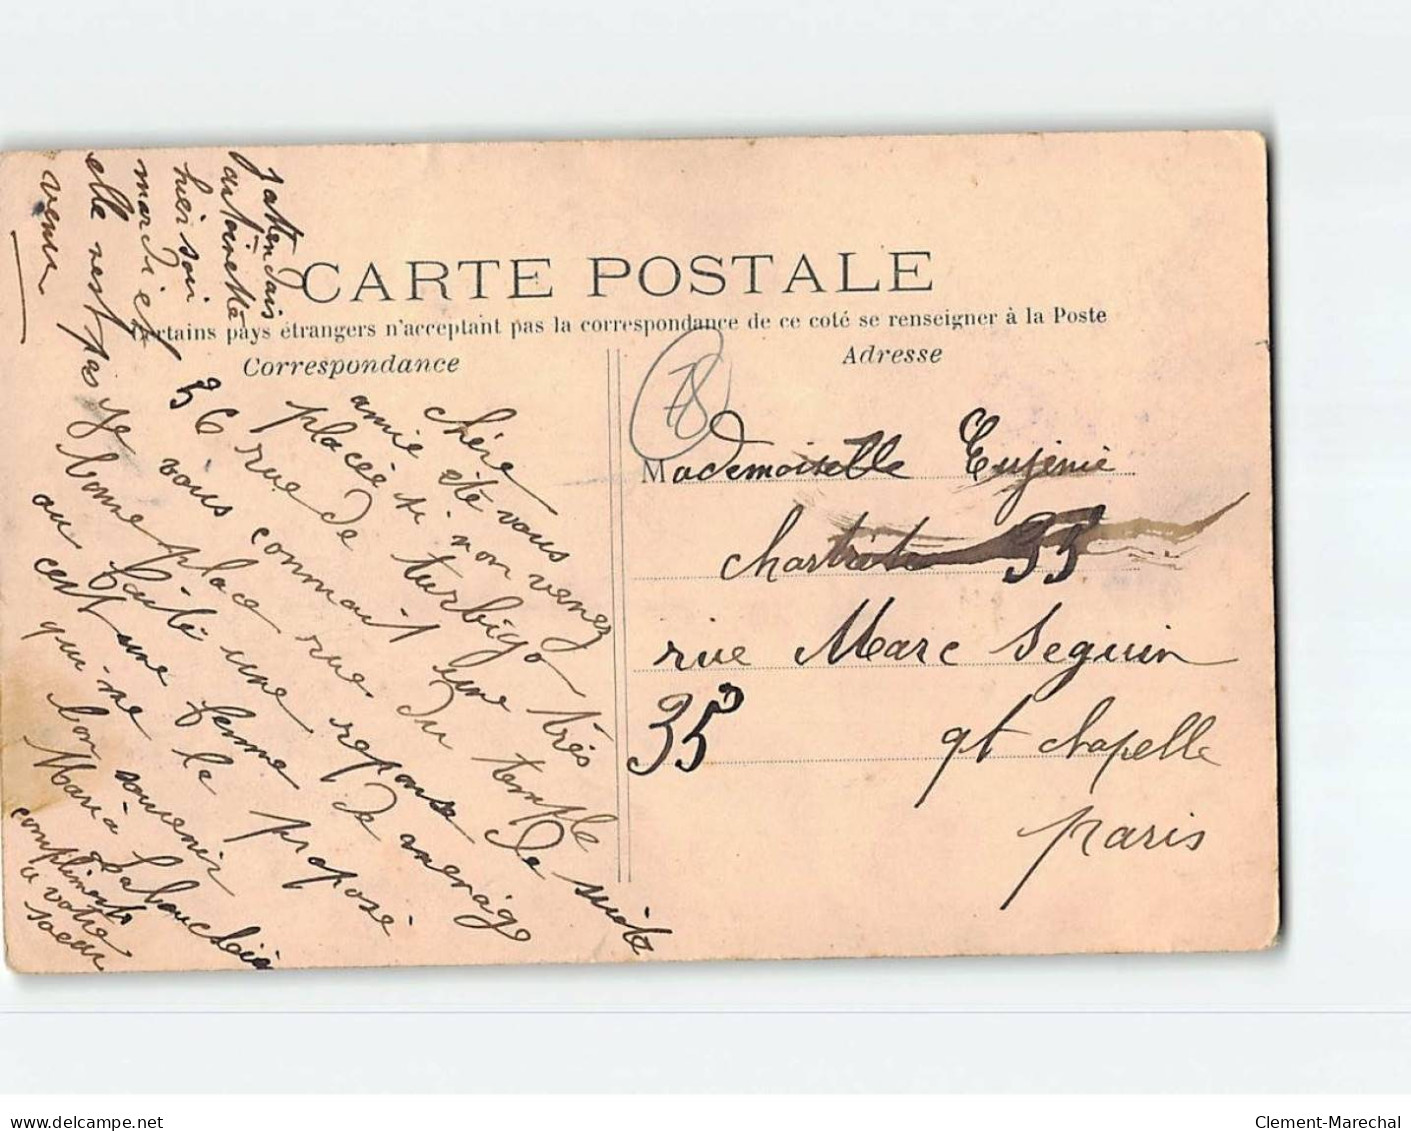 CARTE POSTALE
Certains pays étrangers n'acceptant pas la correspondance de ce coté se renseigner à la Poste
Correspondance
Adresse
chère
amie été vous
placée si non venez
36 rue de turbigo très
vous connait une
je bonne place rue du temple
ou faite une reponse de suite
cest une femme de menage
qui me la proposé
bon souvenir
Maria Labouchère
compliments
a votre
soeur
jattendais
antoinette
hier soir
mardi et
elle nest pas
venue
78
Mademoiselle Eugénie
35
rue Marc Seguin
35
qt chapelle
paris
delcampe.net
Clement-Marechal